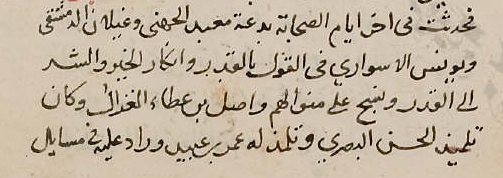 فحدثت في اخر ايام الصحابة بدعة معبد الجهني وغيلان الدمشقي
ويونس الاسواري في القول بالقدر وانكار الخير والشر
الى القدر ونسج على منوالهم واصل بن عطاء الغزال وكان
تلميذ الحسن البصري وتلمذ له عمرو بن عبيد وزاد عليه في مسايل